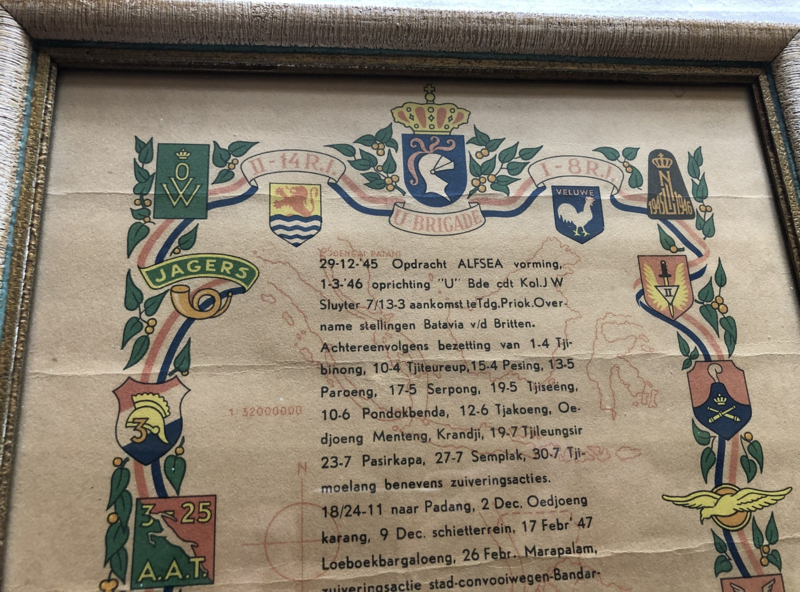 OW
II-14 R.I.
U-BRIGADE
I-8 R.I.
VELUWE
N
1945 1946
JAGERS
II
V
3
3-25
A.A.T.
SOENGAI PATANI
1:32000000
N
29-12-'45 Opdracht ALFSEA vorming,
1-3-'46 oprichting "U" Bde cdt Kol.J W
Sluyter 7/13-3 aankomst teTdg.Priok.Over-
name stellingen Batavia v/d Britten.
Achtereenvolgens bezetting van 1-4 Tji-
binong, 10-4 Tjiteureup,15-4 Pesing, 13-5
Paroeng, 17-5 Serpong, 19-5 Tjiseëng,
10-6 Pondokbenda, 12-6 Tjakoeng, Oe-
djoeng Menteng, Krandji, 19-7 Tjileungsir
23-7 Pasirkapa, 27-7 Semplak, 30-7 Tji-
moelang benevens zuiveringsacties.
18/24-11 naar Padang, 2 Dec. Oedjoeng
karang, 9 Dec. schietterrein, 17 Febr' 47
Loeboekbargaloeng, 26 Febr. Marapalam,
zuiveringsactie stad-convooiwegen-Bandar-